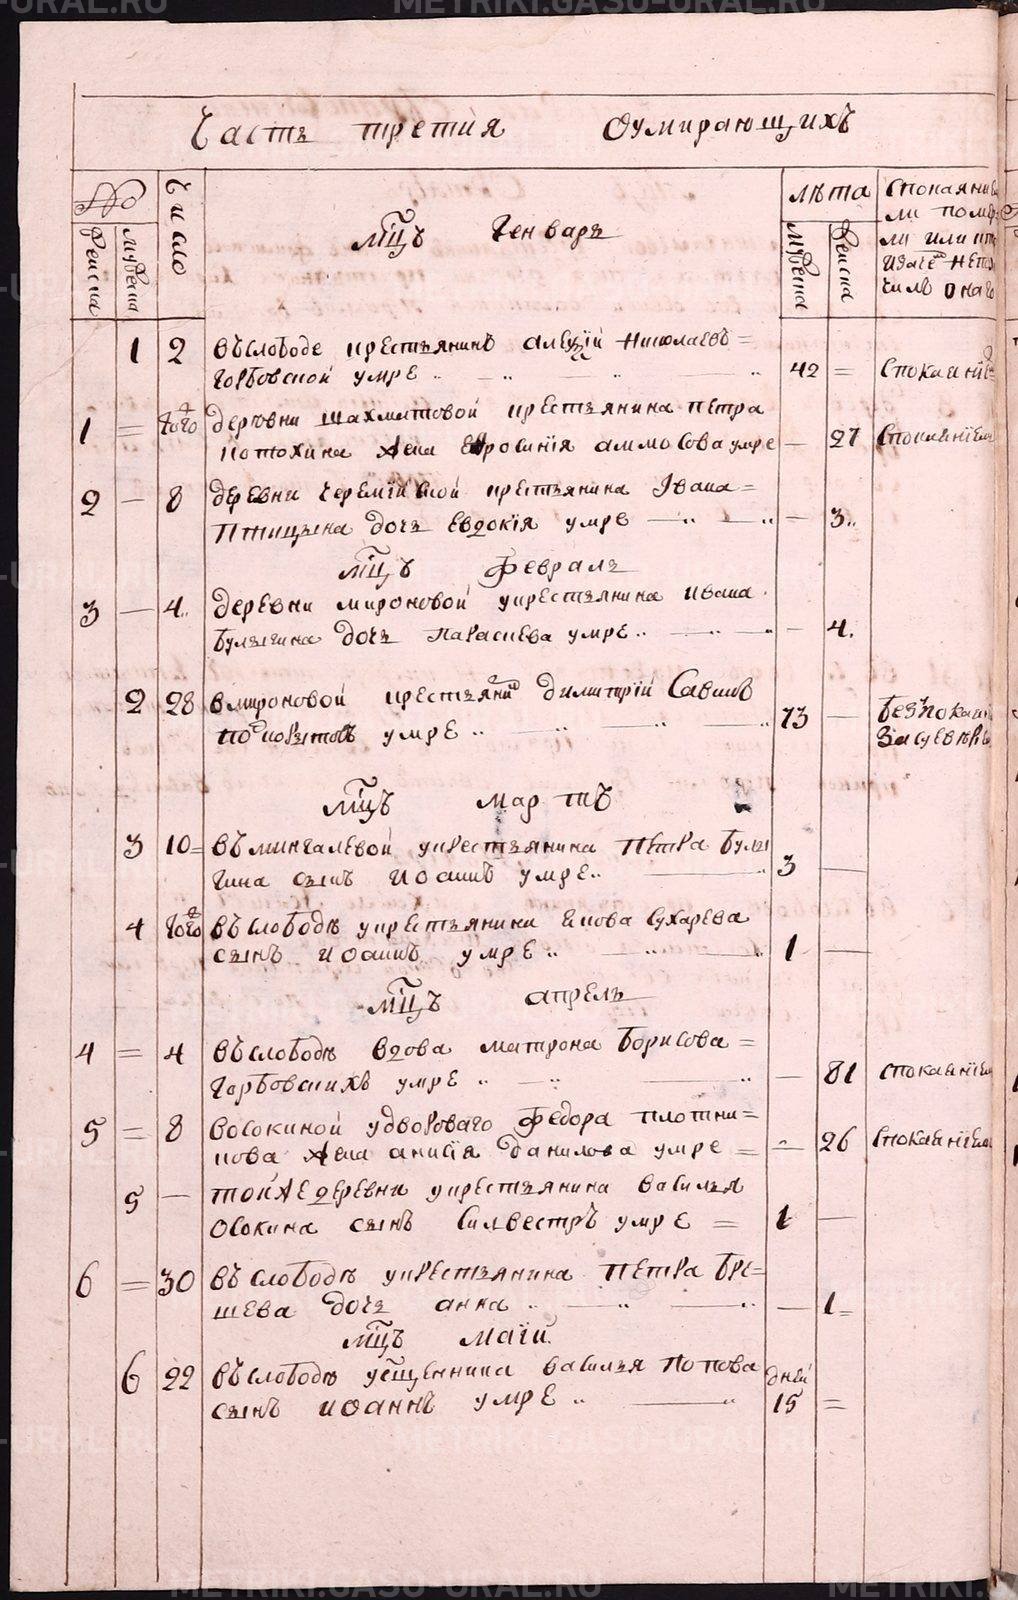 METRIKI.GASO-URAL.RU
Часть третия Оумирающихъ
№ Число лѣта Спокаяние
ли помер
женска мужеска мцъ Генварь мужеска женска ли или
чего онаго
1 2 Въ слободе крестьянинъ Алеѯій Николаевъ =
Горбовской умре .. — .. — — .. 42 = Спокаяніе
1 = того деревни Шахматовой крестьянина Петра
Потохина жена Евросинія Аммосова умре — 27 Спокаяніем
2 — 8 деревни Черемійской крестьянина Ивана =
Птицына дочь Евдокія умре — .. — .. — 3..
мцъ Февраль
3 — 4.. деревни Мироновой укрестьянина Ивана
Булыгина дочь Параскева умре .. — .. — .. — 4.
2 28 В Мироновой крестьянинъ Димитрій Савинъ
умре .. — .. — .. — .. 73 — Без покаян
За суевѣр
мцъ Мартъ
3 10 = Въ Мингалевой укрестьянина Петра Булы
гина сынъ Иоаннъ умре .. — .. 3 —
4 того Въ слободѣ укрестьянина Иякова Сухарева
сынъ Иоаннъ умре .. — .. — .. 1 —
мцъ Апрель
4 = 4 Въ слободѣ вдова Матрона Борисова =
Горбовскихъ умре .. — .. — .. — 81 спокаяніем
5 = 8 Восокиной удвороваго Федора Плотни=
кова жена Анисія Данилова умре = — 26 Спокаяніем
5 — той же деревни укрестьянина Василья
Осокина сынъ Силвестръ умре = 1 —
6 = 30 Въ слободѣ укрестьянина Петра Бре=
шева дочь Анна .. — .. — .. — 1 =
мцъ Маій
6 22 Въ слободѣ усщенника Василья Попова дней
сынъ Иоаннъ умре .. — .. 15 =
METRIKI.GASO-URAL.RU